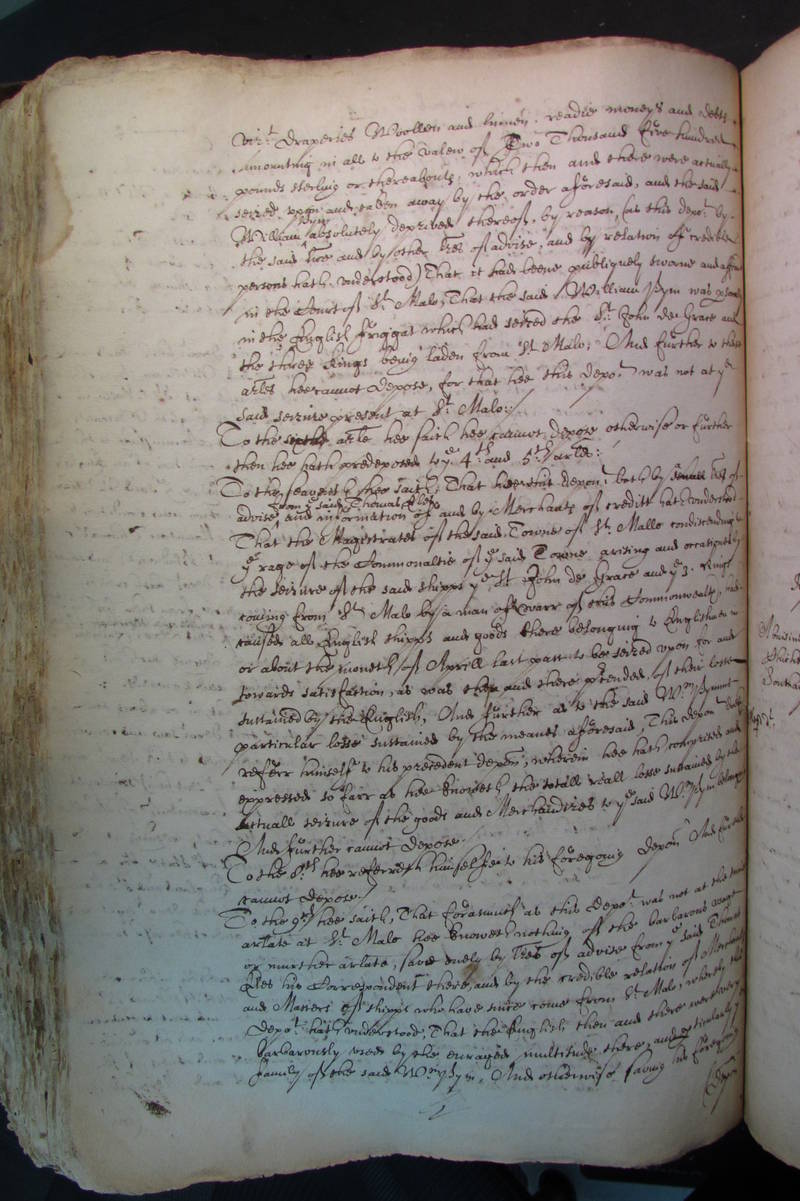 vizt. draperies Woollen and linnen, readie moneys and debts
amounting in all to the valew of Two Thousand five hundred
pounds sterling or thereabouts, which then and there were actually
seized upon and taken away by the order aforesaid, and the said
William Pym absolutely deprived thereof, by reason (as this depot. by
the said and by other lres of advise, and by relation of credible
persons hath understood) That it had beene publiquely sworne and
in the Court of St. Malo, That the said William Pym was
in the English friggat which had seized the St. John de Grace and
the three Kings being laden from St. Malo, And further to these
arles hee cannot depose, for that hee this depot. was not at ye
said seizure present at St. Malo./
To the sixth arle hee saith hee cannot depose otherwise or further
then hee hath predeposed to ye 4th and 5th arles:/
To the seaventh hee saith, That hee this depont. both by lres of
advise from ye said Thomas and information of and by Merchants of creditt hath understood
That the Magistrates of the said Towne of St. Mallo condiscending to
ye rage of the Commonaltie of ye said Towne arising and occasioned by
the seizure of the said shipps ye St. John de Grace and ye 3. Kings
coming from St. Malo by a man of warr of this Commonwealth,
caused all English shipps and goods there belonging to Englishmen in
or about the moneth of Aprill last past to be seized upon for and
towards satisfaction, as was then and there ptended, of their losse
sustained by the English, And further as to the said Wm. Pym
particular losse sustained by the meanes aforesaid, This depont.
referr himself to his precedent deposn, wherein hee hath comprised and
expressed so farr as hee knoweth the totall reall losse sustained by the
actuall seizure of the goods and Merchandizes to ye said Wm. Pym belonging
And further cannot depose.
To the 8th. hee referreth himselfe to his foregoing deposn And further
cannot depose./
To the 9th hee saith, That forasmuch as this depot. was not at the time
arlate at St. Malo hee knoweth nothing of the barbarous usage
or murther arlate, save onely by lres of advise from ye said Thomas
his Correspondent there, and by the credible relation of Merchants
and Masters of shipps who have since come from St. Malo, whereby this
depot. hath understood, That the English then and there were very
barbarously used by the enraged multitude there, and perticularly ye
family of the said Wm. Pym, And otherwise saving his foregoing